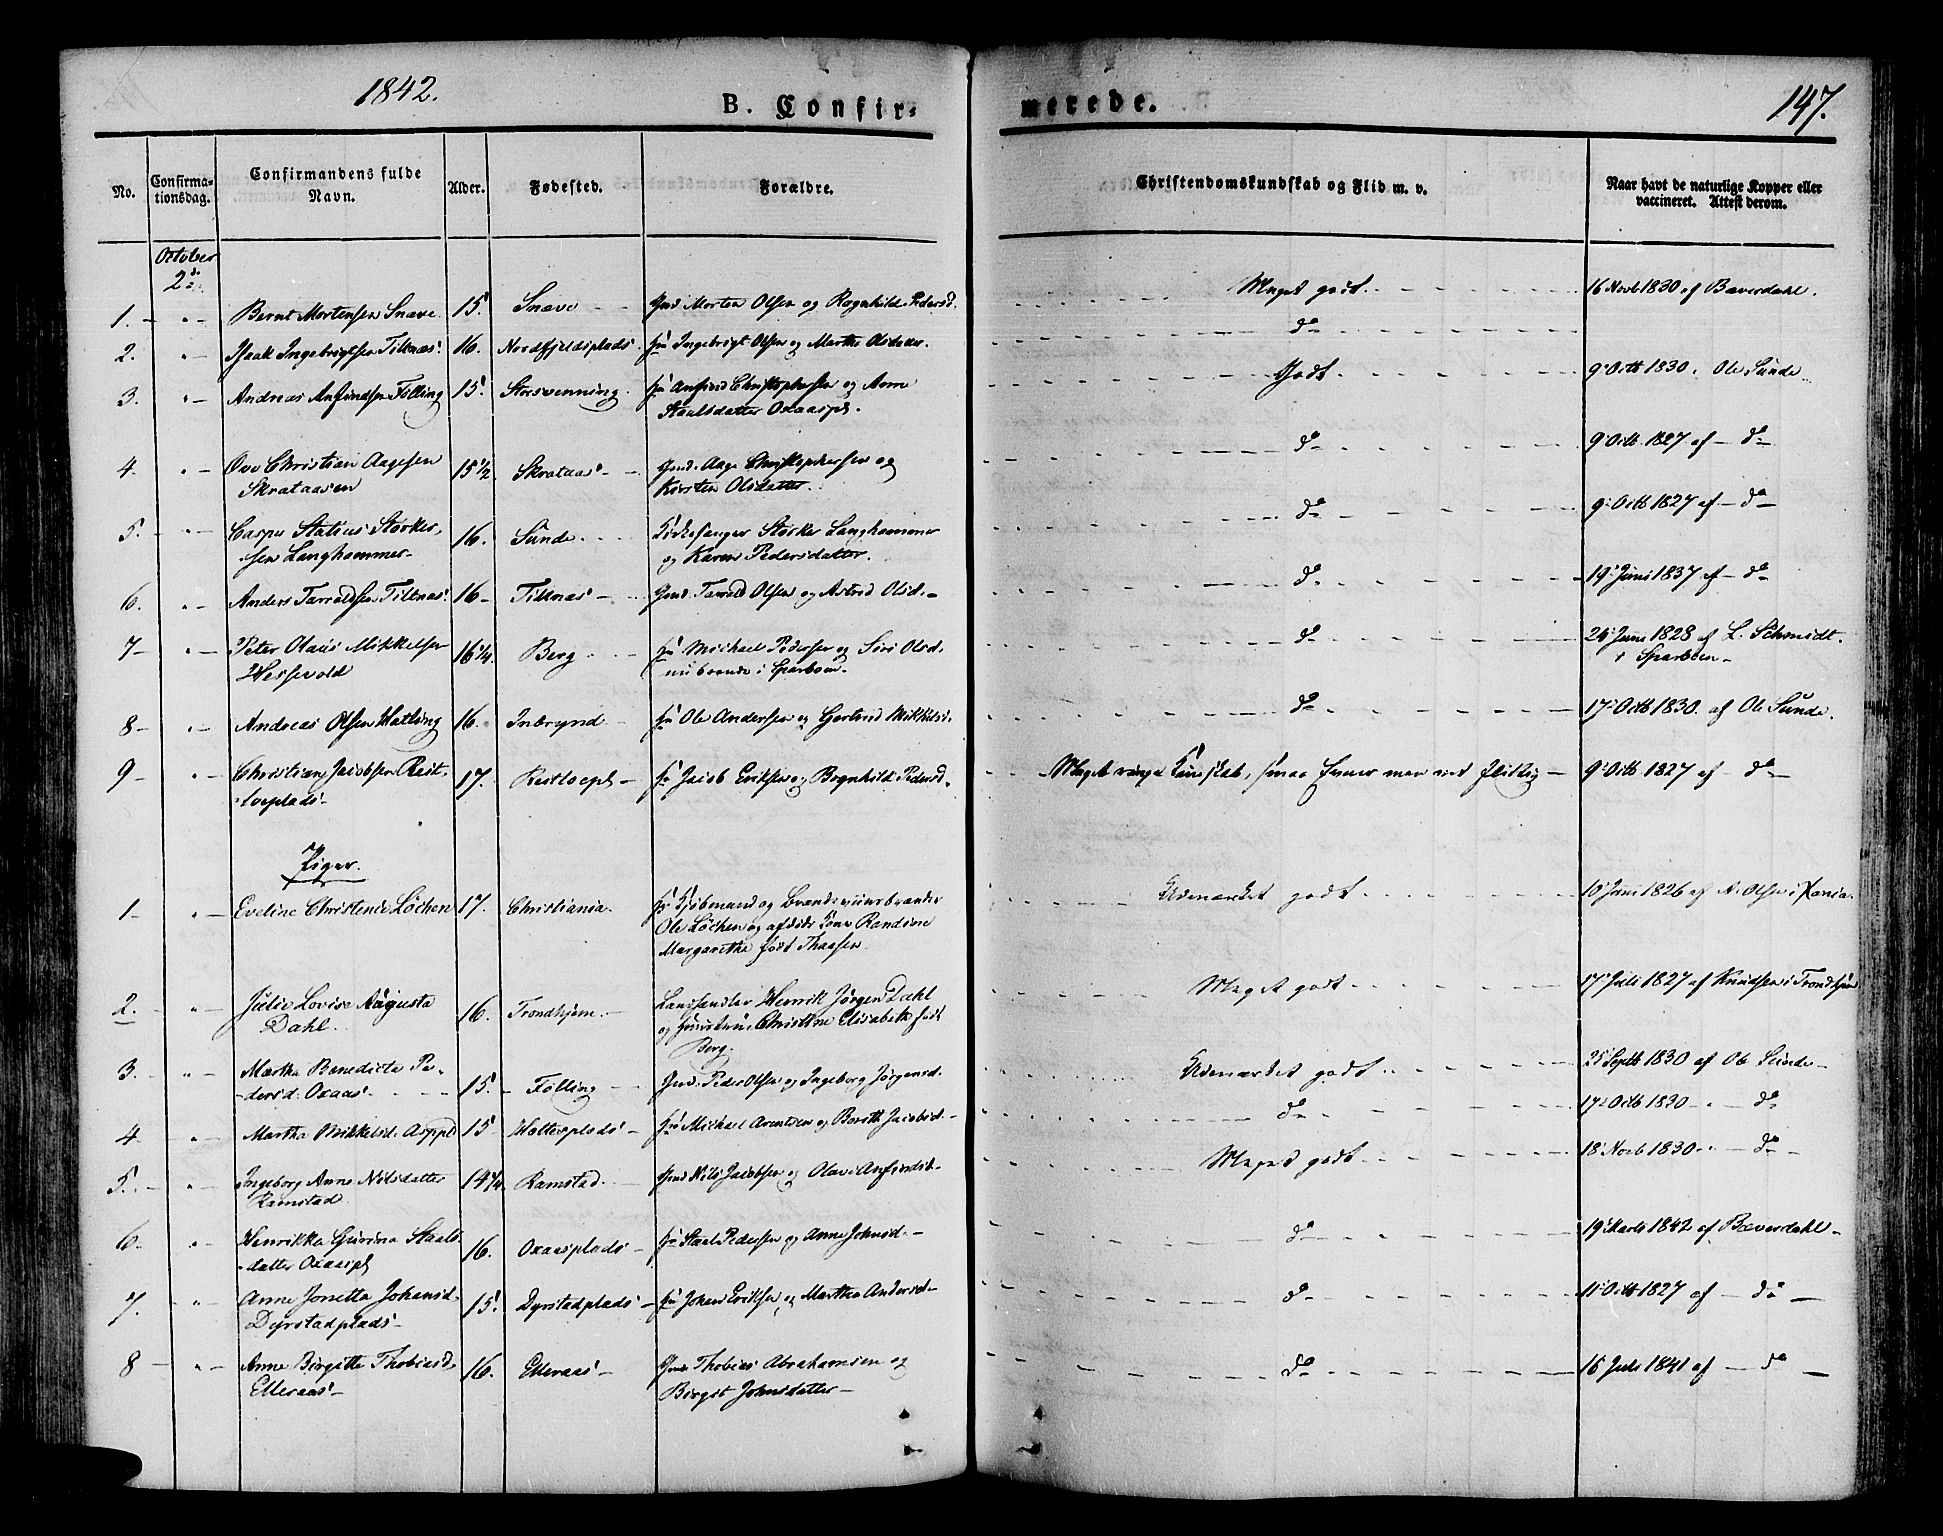 1842.
B. Confirmerede.
147.
No.
Confirmationsdag.
Confirmandens fulde Navn.
Alder.
Fødested.
Forældre.
Christendomskundskab og Flid m. v.
Naar havt de naturlige Kopper eller vaccineret. Attest derom.
October
2d
1. " Bernt Mortensen Snave 15. Snave Gmd. Morten Olsen og Ragnhild Pedersd. Meget godt. 16 Novb 1830 af Bæverdahl.
2. " Isaak Ingebrigtsen Tilknas 16. Nordfjeldsplads Ingebrigt Olsen og Martha Olsdatter. do
3. " Andreas Anfindsen Følling 15. Storsvenning Anfind Christophersen og Anne
Staalsdatter Oxaaspl. Godt. 9 Octb 1830. Ole Sunde
4. " Ove Christian Aagesen
Skrataasen 15 1/2 Skrataas Gmd. Aage Christophersen og
Kirsten Olsdatter. do 9 Octb. 1827 af do
5. " Casper Statius Størker,
sen Langhammer 16. Sunde Kirkesanger Størker Langhammer
og Karen Pedersdatter. do 9 Octb 1827 af do
6. " Anders Tarraldsen Tilknas 16 Tilknas Gmd. Tarald Olsen og Astrid Olsd. do 19 Juni 1837 af do
7 " Peter Olaus Mikkelsen
16 1/4 Berg Michael Pedersen og Siri Olsd.
nu boende i Sparboen. do 24 Juni 1828 af L. Schmidt
Sparboen
8 " Andreas Olsen Hatling 16. Inbrynd Ole Andersen og Gjertrud Mikkelsd. do 17 Octb 1830. af Ole Sunde.
9 " Christian Jacobsen Rest-
toeplads 17. Resttoepl Jacob Eriksen og Brynhild Pedersd. Meget ringe Kundskab, smaa Evner men ved flittig 9 Octb 1827 af do
Piger.
1 " Eveline Christence Løchen 17. Christiania. Kjøbmand og Brændeviinsbrænder
Ole Løchen og afdøde Kone Randine
Margarethe født Thaasen. Udmærket godt 10 Juni 1826 af N. Olsen i Xania.
2. " Julie Lovise Augusta
Dahl. 16. Trondhjem. Landhandler Henrik Jørgen Dahl
og Christine Elisabeth født
Berg. Meget godt 17 Juli 1827 af Knudsen i Trondhjem
3. " Martha Benedicte Pe-
dersd. Oxaas 15. Følling Gmd. Peder Olsen og Ingeborg Jørgensd. Udmærket godt 25 Septb 1830 af Ole Sunde
4 " Martha Mikkelsd. Aspl. 15 Holtesplads Michael Arentsen og Bereth Jacobsd. do 17 Octb 1830 " do
5. " Ingeborg Anne Nilsdatter
Ramstad 14 3/4 Ramstad. Gmd Nils Jacobsen og Olava Anfindsd. Meget godt 18 Novb 1830 " do
6 " Henrikka Gurina Staals-
datter Oxaaspl 16. Oxaasplads Staal Pedersen og Anne Johnsd. do 19 Marts 1842 af Bæverdahl
7. " Anne Jonetta Johansd.
Dyrstadplads 15. Dyrstadplads Johan Eriksen og Martha Andersd. do 11 Octb 1827 af do
8 " Anne Birgitte Thobiasd.
Elleraas 16. Elleraas Gmd Thobias Abrahamsen og
Birgit Johnsdatter do 15 Juli 1841 af do